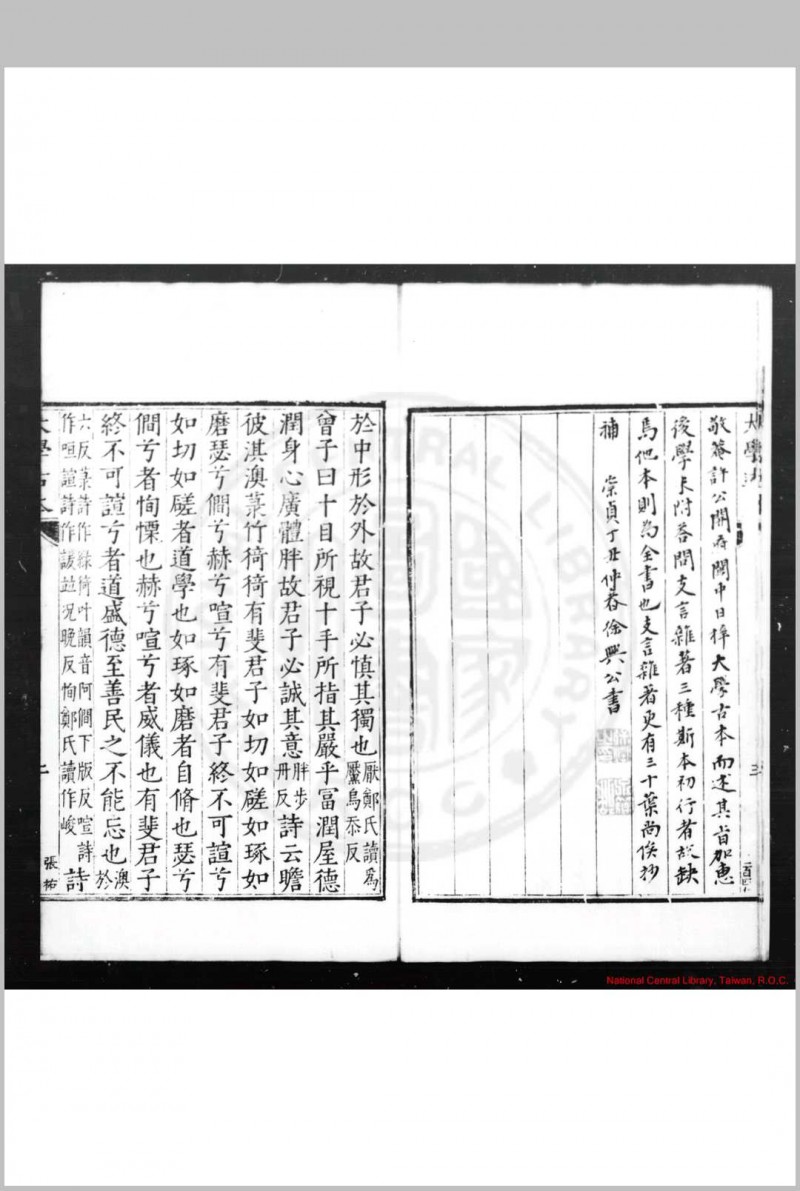 敬菴許公開府閩中日梓大學古本而述其旨加惠
後學末附荅問支言雜著三種斯本初行者故缺
焉他本則為全書也支言雜著更有三十葉尚俟抄
補　崇貞丁丑仲春徐興公書
於中形於外故君子必慎其獨也厭鄭氏讀爲黶烏忝反
曾子曰十目所視十手所指其嚴乎富潤屋德
潤身心廣體胖故君子必誠其意胖步丹反詩云瞻
彼淇澳菉竹猗猗有斐君子如切如磋如琢如
磨瑟兮僩兮赫兮喧兮有斐君子終不可諠兮
如切如磋者道學也如琢如磨者自脩也瑟兮
僩兮者恂慄也赫兮喧兮者威儀也有斐君子
終不可諠兮者道盛德至善民之不能忘也澳於
六反菉詩作綠猗叶韻音阿僩下版反喧詩作咺諠詩作諼並況晚反恂鄭氏讀作峻詩
大學古本
二
張祐
National Central Library, Taiwan, R.O.C.